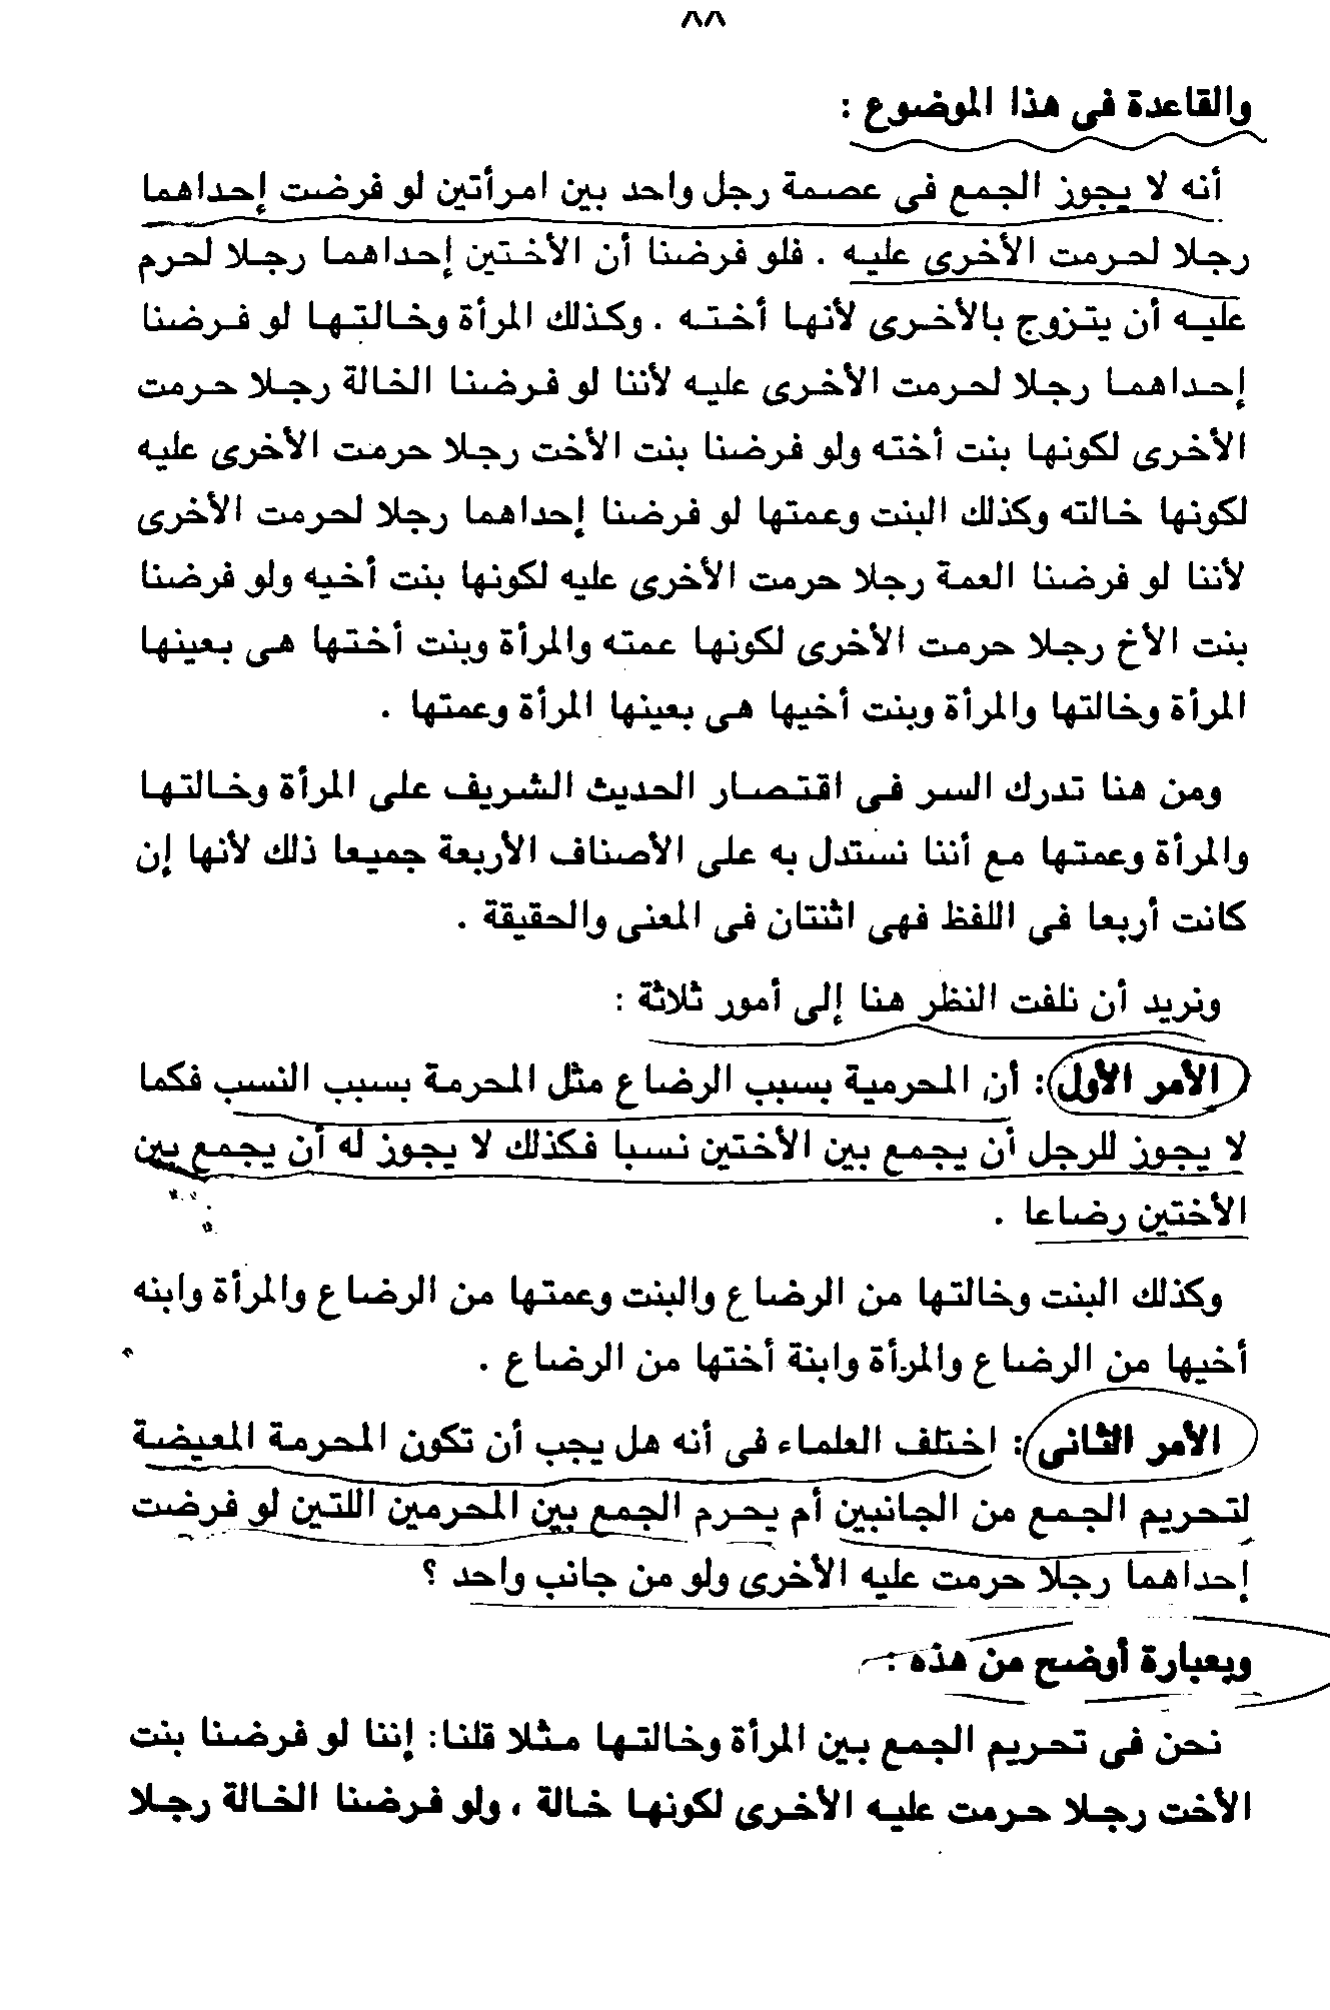 ٨٨
والقاعدة فى هذا الموضوع :
أنه لا يجوز الجمع فى عصمة رجل واحد بين امرأتين لو فرضت إحداهما
رجلا لحرمت الأخرى عليه . فلو فرضنا أن الأختين إحداهما رجلا لحرم
عليه أن يتزوج بالأخرى لأنها أخته . وكذلك المرأة وخالتها لو فرضنا
إحداهما رجلا لحرمت الأخرى عليه لأننا لو فرضنا الخالة رجلا حرمت
الأخرى لكونها بنت أخته ولو فرضنا بنت الأخت رجلا حرمت الأخرى عليه
لكونها خالته وكذلك البنت وعمتها لو فرضنا إحداهما رجلا لحرمت الأخرى
لأننا لو فرضنا العمة رجلا حرمت الأخرى عليه لكونها بنت أخيه ولو فرضنا
بنت الأخ رجلا حرمت الأخرى لكونها عمته والمرأة وبنت أختها هى بعينها
المرأة وخالتها والمرأة وبنت أخيها هى بعينها المرأة وعمتها .
ومن هنا تدرك السر فى اقتصار الحديث الشريف على المرأة وخالتها
والمرأة وعمتها مع أننا نستدل به على الأصناف الأربعة جميعا ذلك لأنها إن
كانت أربعا فى اللفظ فهى اثنتان فى المعنى والحقيقة .
ونريد أن نلفت النظر هنا إلى أمور ثلاثة :
الأمر الأول : أن المحرمية بسبب الرضاع مثل المحرمة بسبب النسب فكما
لا يجوز للرجل أن يجمع بين الأختين نسبا فكذلك لا يجوز له أن يجمع بين
الأختين رضاعا .
وكذلك البنت وخالتها من الرضاع والبنت وعمتها من الرضاع والمرأة وابنه
أخيها من الرضاع والمرأة وابنة أختها من الرضاع .
الأمر الثانى : اختلف العلماء فى أنه هل يجب أن تكون المحرمة المعيضة
لتحريم الجمع من الجانبين أم يحرم الجمع بين المحرمين اللتين لو فرضت
إحداهما رجلا حرمت عليه الأخرى ولو من جانب واحد ؟
وبعبارة أوضح من هذه :
نحن فى تحريم الجمع بين المرأة وخالتها مثلا قلنا : إننا لو فرضنا بنت
الأخت رجلا حرمت عليه الأخرى لكونها خالة ، ولو فرضنا الخالة رجلا